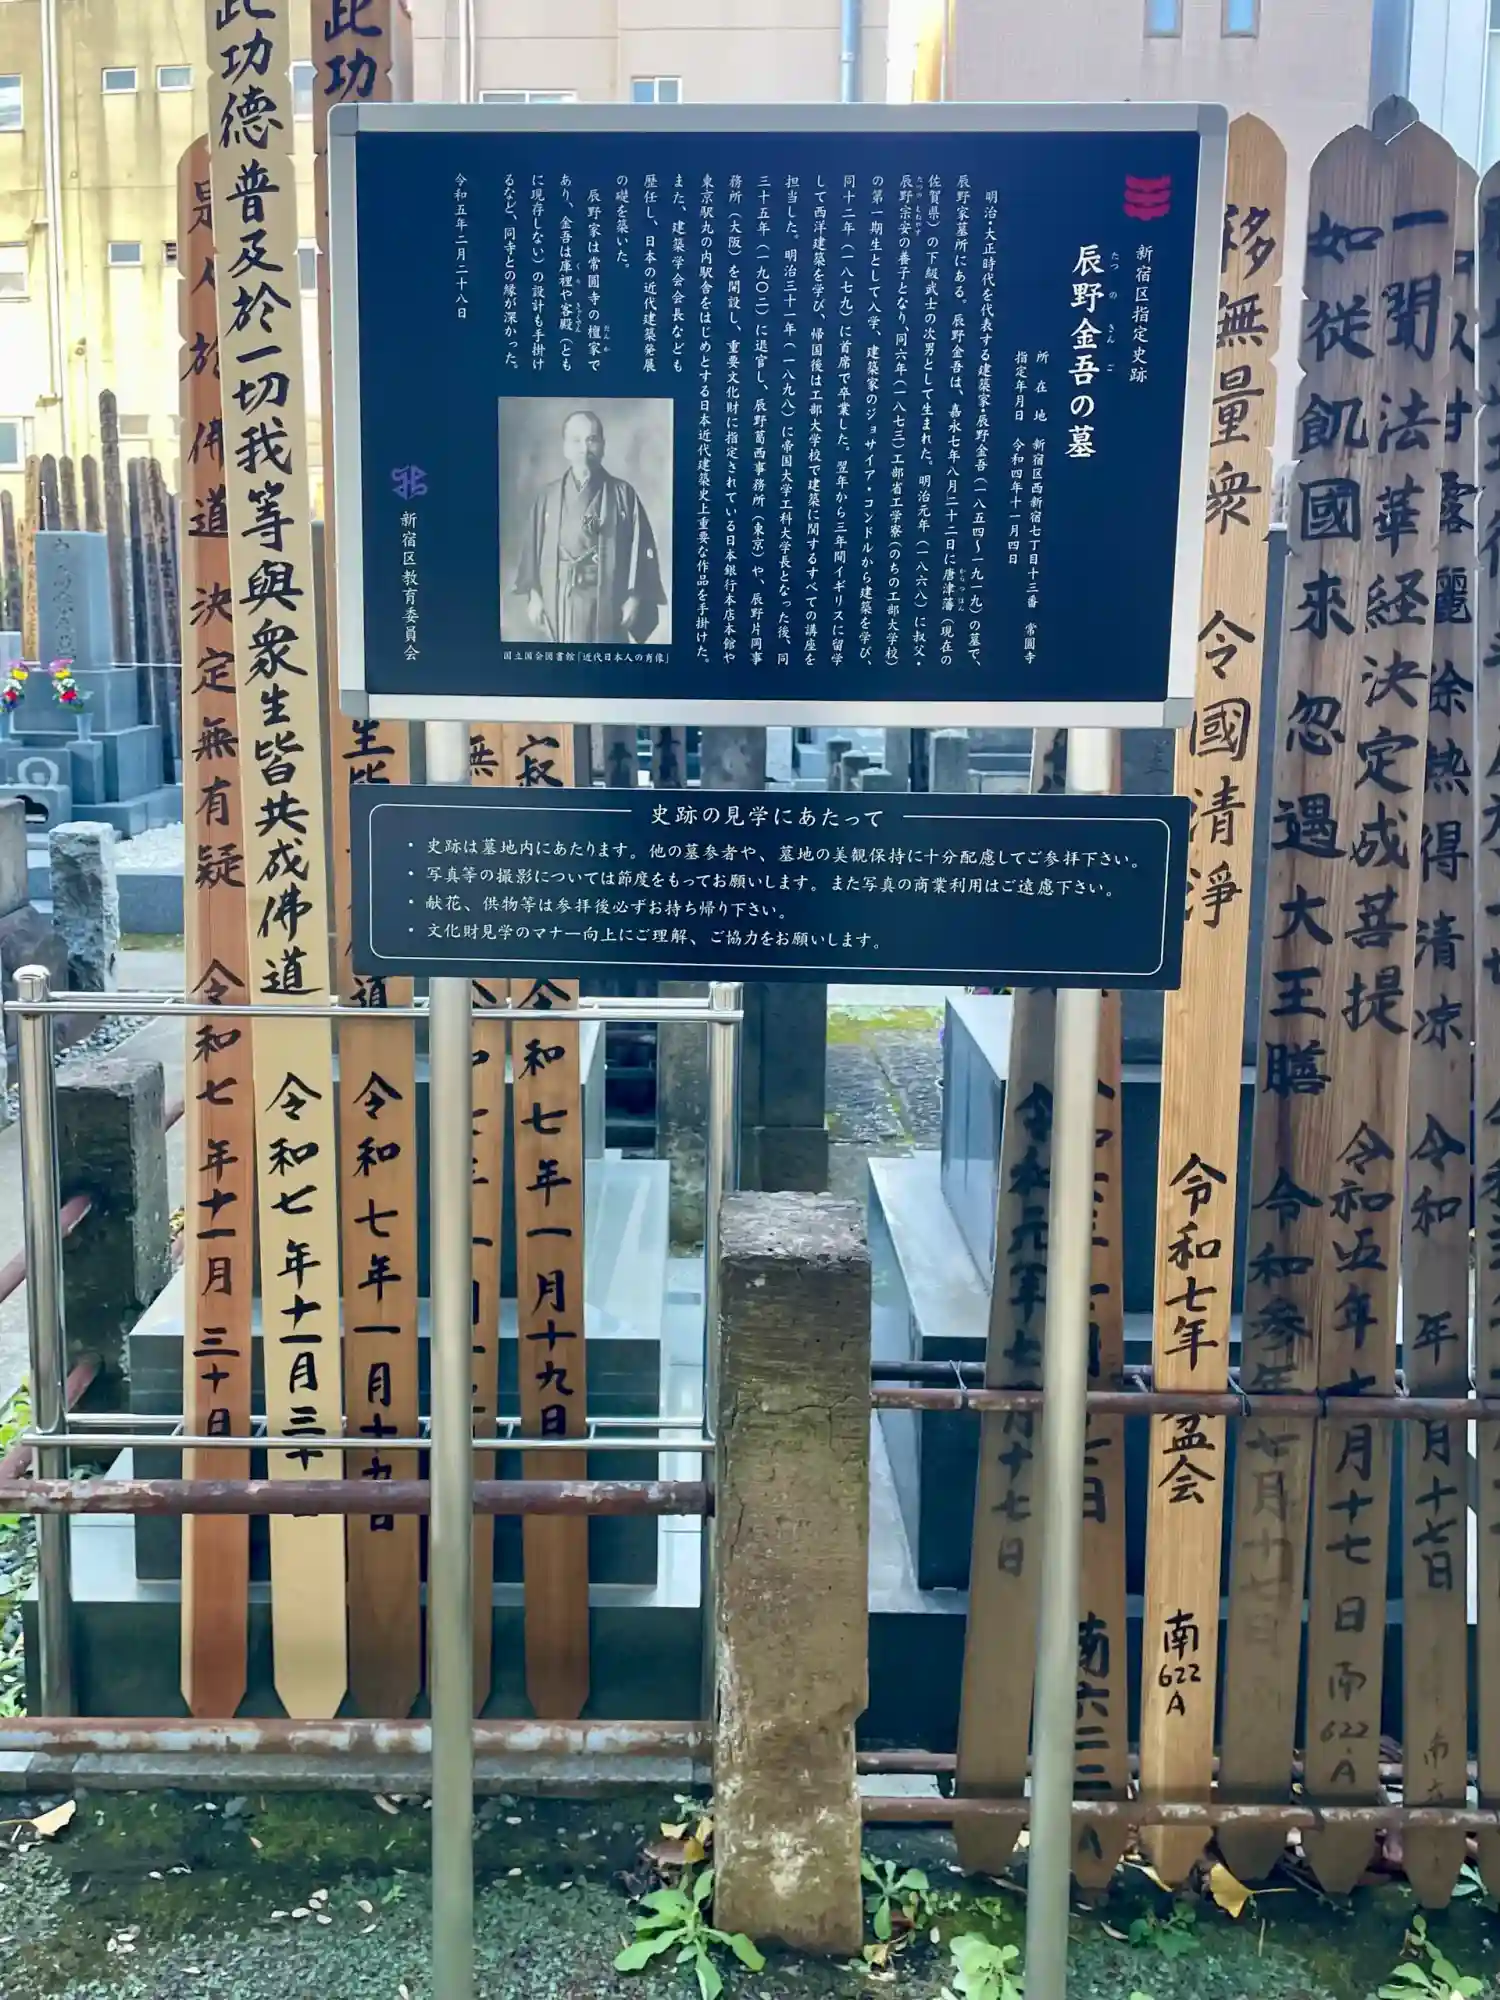 新宿区指定史跡
辰野金吾の墓
たつのきんご
所在地 新宿区西新宿七丁目十三番 常圓寺
指定年月日 令和四年十一月四日
明治・大正時代を代表する建築家・辰野金吾(一八五四〜一九一九)の墓で、
辰野家墓所にある。辰野金吾は、嘉永七年八月二十二日に唐津藩(現在の
からつはん
佐賀県)の下級武士の次男として生まれた。明治元年(一八六八)に叔父・
辰野宗安の養子となり、同六年(一八七三)工部省工学寮(のちの工部大学校)
たつのむねやす
の第一期生として入学、建築家のジョサイア・コンドルから建築を学び、
同十二年(一八七九)に首席で卒業した。翌年から三年間イギリスに留学
して西洋建築を学び、帰国後は工部大学校で建築に関するすべての講座を
担当した。明治三十一年(一八九八)に帝国大学工科大学長となった後、同
三十五年(一九〇二)に退官し、辰野葛西事務所(東京)や、辰野片岡事
務所(大阪)を開設し、重要文化財に指定されている日本銀行本店本館や
東京駅丸の内駅舎をはじめとする日本近代建築史上重要な作品を手掛けた。
また、建築学会会長なども
歴任し、日本の近代建築発展
の礎を築いた。
辰野家は常圓寺の檀家で
だんか
あり、金吾は庫裡や客殿(とも
くり きゃくでん
に現存しない)の設計も手掛け
るなど、同寺との縁が深かった。
令和五年二月二十八日
新宿区教育委員会
国立国会図書館「近代日本人の肖像」
史跡の見学にあたって
・史跡は墓地内にあたります。他の墓参者や、墓地の美観保持に十分配慮してご参拝下さい。
・写真等の撮影については節度をもってお願いします。また写真の商業利用はご遠慮下さい。
・献花、供物等は参拝後必ずお持ち帰り下さい。
・文化財見学のマナー向上にご理解、ご協力をお願いします。
是人於佛道 決定無有疑 令和七年十一月三十日
此功徳普及於一切我等與衆生皆共成佛道 令和七年十一月三十日
此功 生皆 道 令和七年一月十九日
令和七年一月十九日
令和元年七月十七日
南六二二A
移無量衆 令國清淨 令和七年 盆会 南622A
如従飢國来 忽遇大王膳 令和参年七月十七日
一聞法華経 決定成菩提 令和五年七月十七日 南622.A
露麗 除熱得清凉 令和 年 月十七日